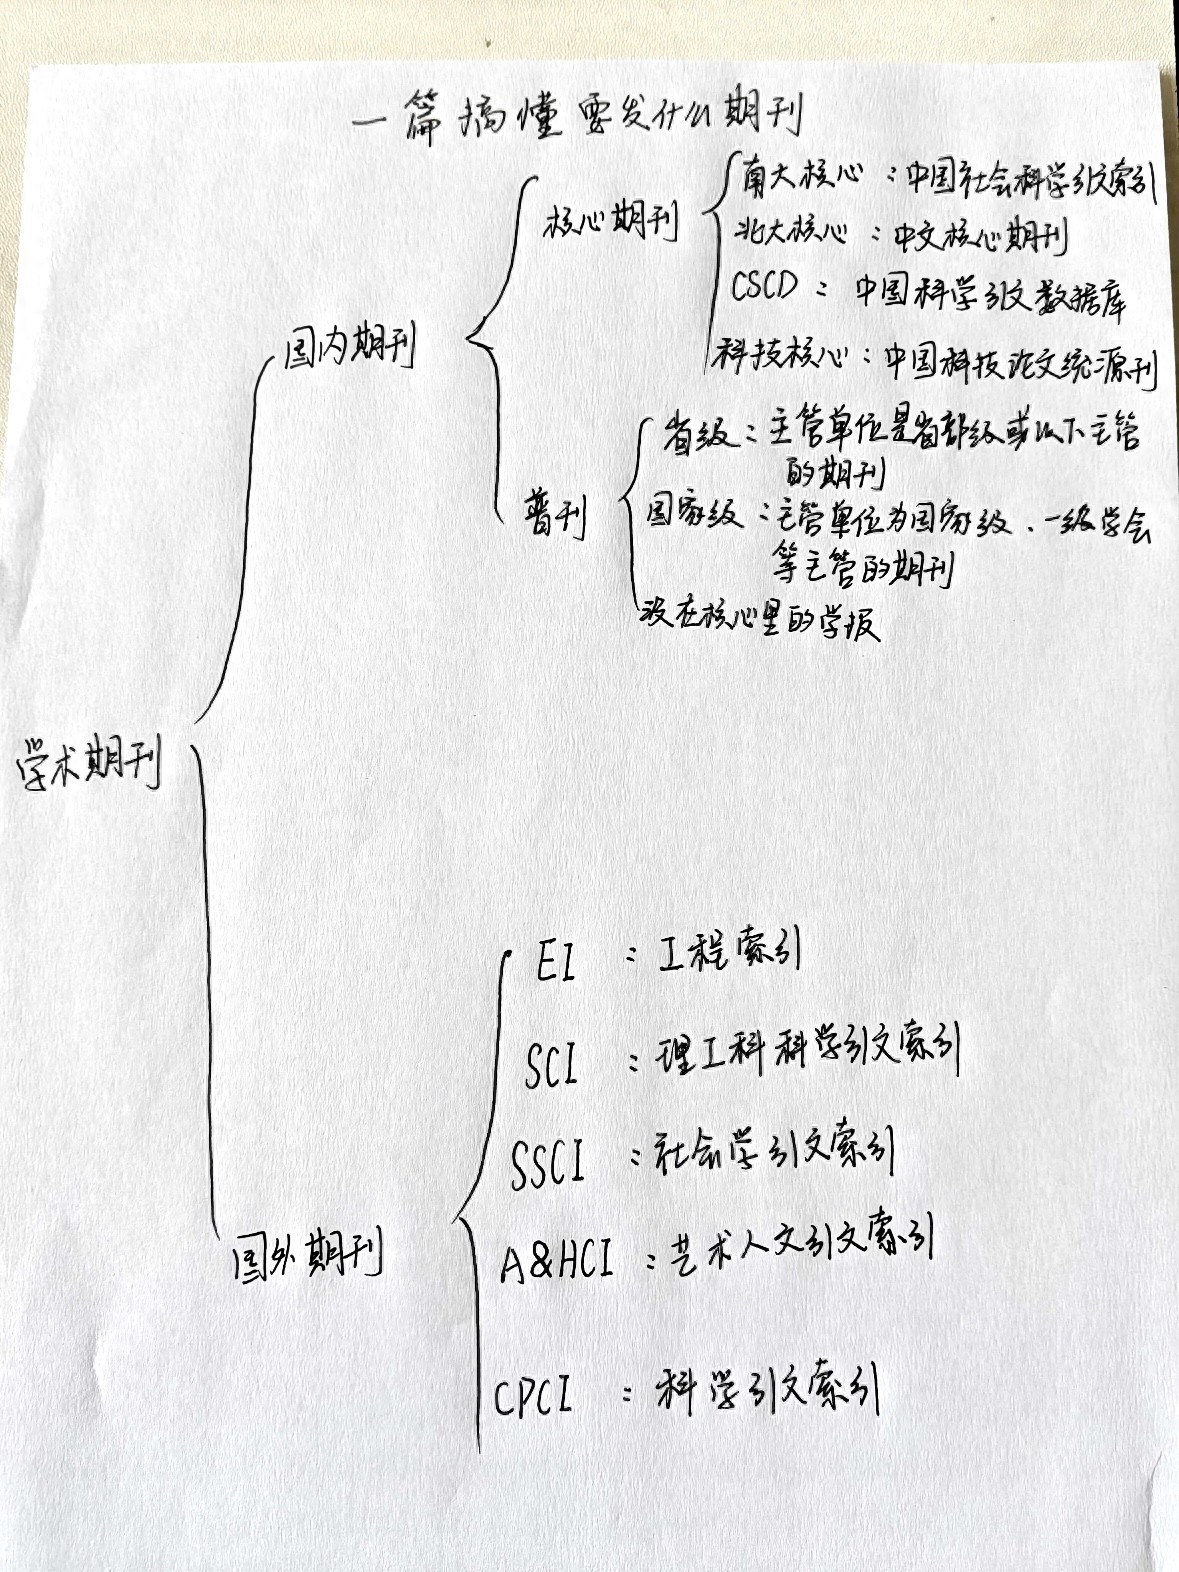 一篇搞懂要发什么期刊
学术期刊
国内期刊
核心期刊
南大核心：中国社会科学引文索引
北大核心：中文核心期刊
CSCD：中国科学引文数据库
科技核心：中国科技论文统源刊
普刊
省级：主管单位是省部级或以下主管
的期刊
国家级：主管单位为国家级、一级学会
等主管的期刊
没在核心里的学报
国外期刊
EI：工程索引
SCI：理工科科学引文索引
SSCI：社会学引文索引
A&HCI：艺术人文引文索引
CPCI：科学引文索引